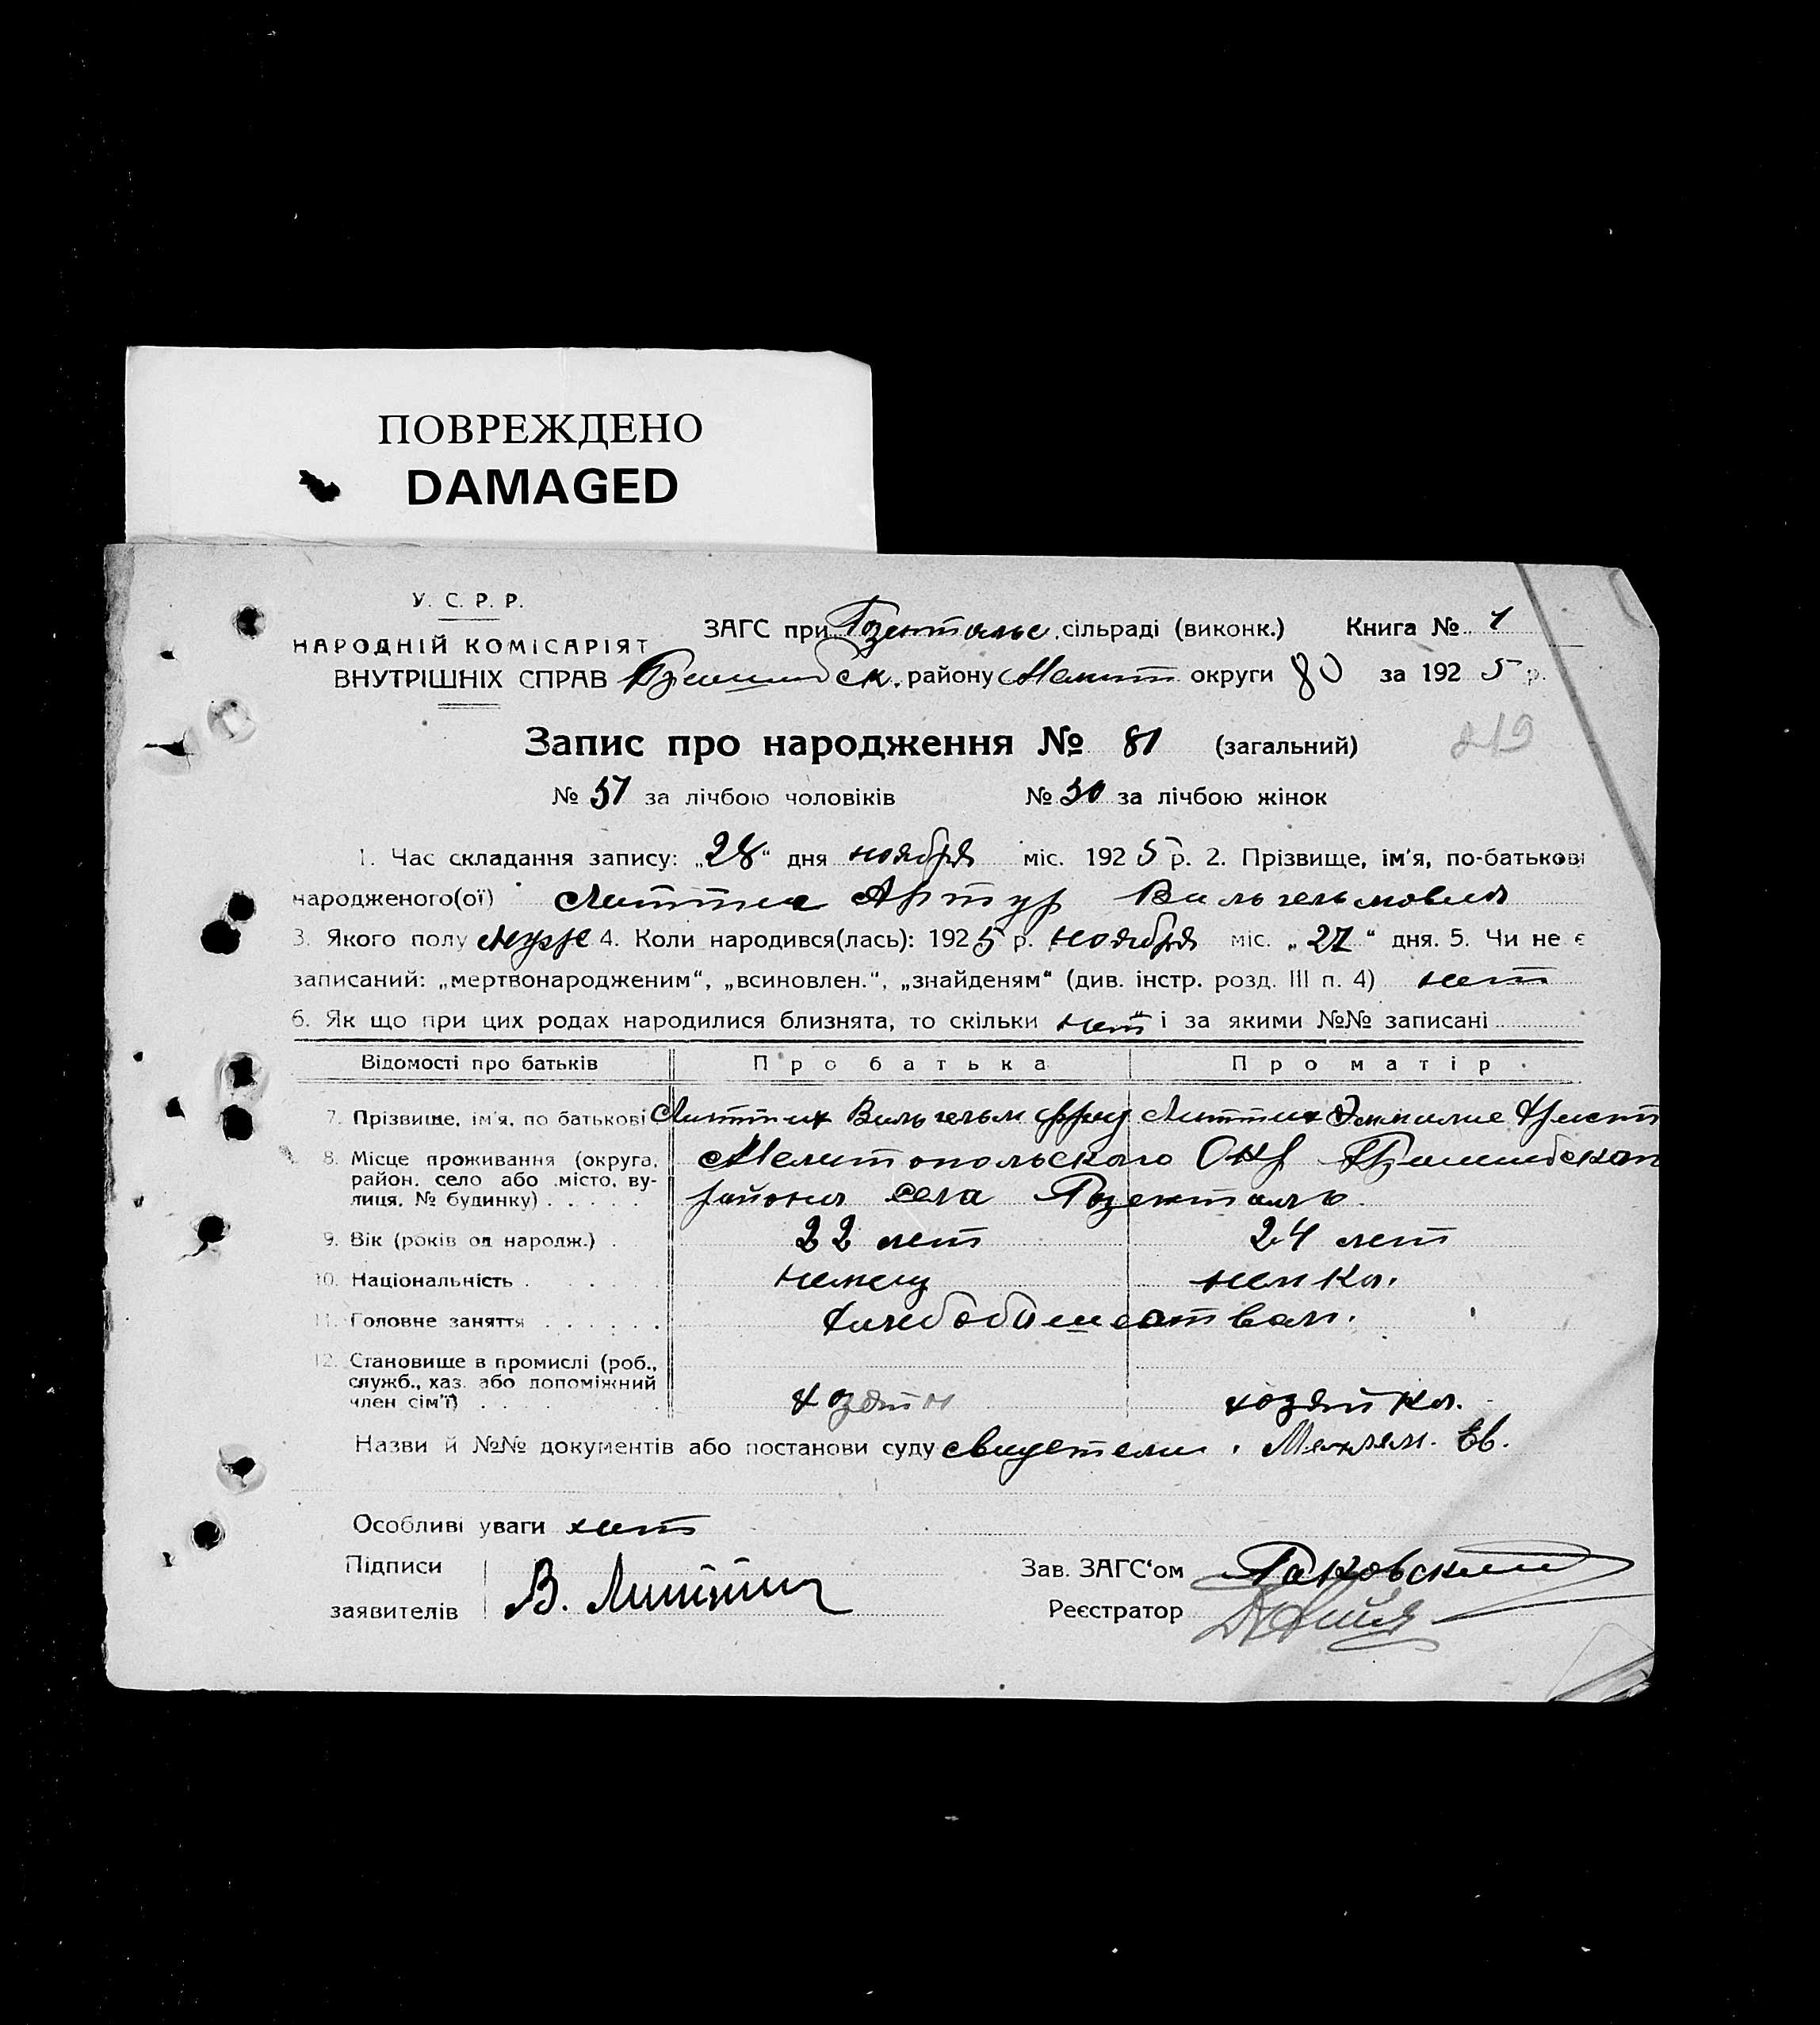 ПОВРЕЖДЕНО
DAMAGED
У. С. Р. Р.
НАРОДНІЙ КОМІСАРІЯТ
ВНУТРІШНІХ СПРАВ
ЗАГС при сільраді (виконк.) Книга № 1
району Мелит округи 80 за 1925 р.
219
Запис про народження № 81 (загальний)
№ 51 за лічбою чоловіків № 30 за лічбою жінок
1. Час складання запису: „28“ дня ноября міс. 1925 р. 2. Прізвище, ім'я, по-батькові
народженого(ої) Артур Вильгельмович
3. Якого полу муж 4. Коли народився(лась): 1925 р. ноября міс. „27“ дня. 5. Чи не є
записаний: „мертвонародженим“, „всиновлен.“, „знайденям“ (див. інстр. розд. III п. 4) нет
6. Як що при цих родах народилися близнята, то скільки нет і за якими №№ записані
Відомості про батьків Про батька Про матір
7. Прізвище, ім'я, по батькові Литтих Вильгельм Литтих Эммилие Христ
8. Місце проживання (округа, район, село або місто, вулиця, № будинку) Мелитопольского Окр
района села Розенталь
9. Вік (років од народж.) 22 лет 24 лет
10. Національність немец немка.
11. Головне заняття
12. Становище в промислі (роб., служб., хаз. або допоміжний член сім'ї) хозяин хозяйка.
Назви й №№ документів або постанови суду свидетели.
Особливі уваги нет
Підписи
заявителів В. Литтих
Зав. ЗАГС'ом Раковский
Реєстратор